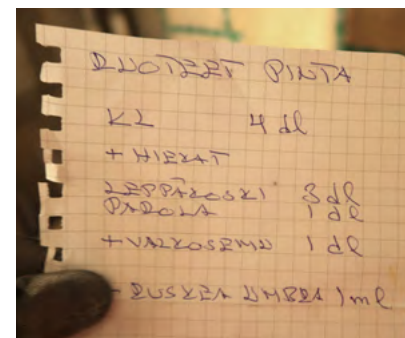 RUOTEET PINTA
KL 4 dl
+ HIEKAT
LEPPÄKOSKI 3 dl
PAROLA 1 dl
+ VALKOSEMU 1 dl
+ RUSKEA UMBRA 1 ml